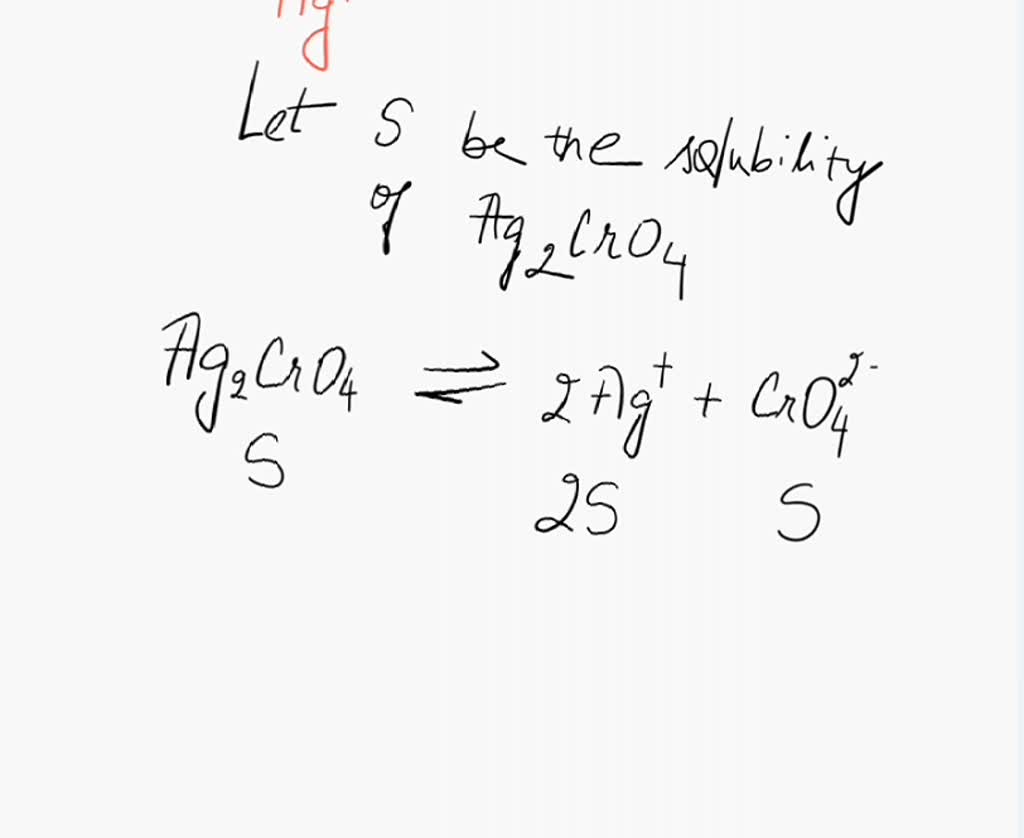 Let S be the solubility
of Ag₂CrO₄
Ag₂CrO₄ ⇌ 2Ag⁺ + CrO₄²⁻
S 2S S